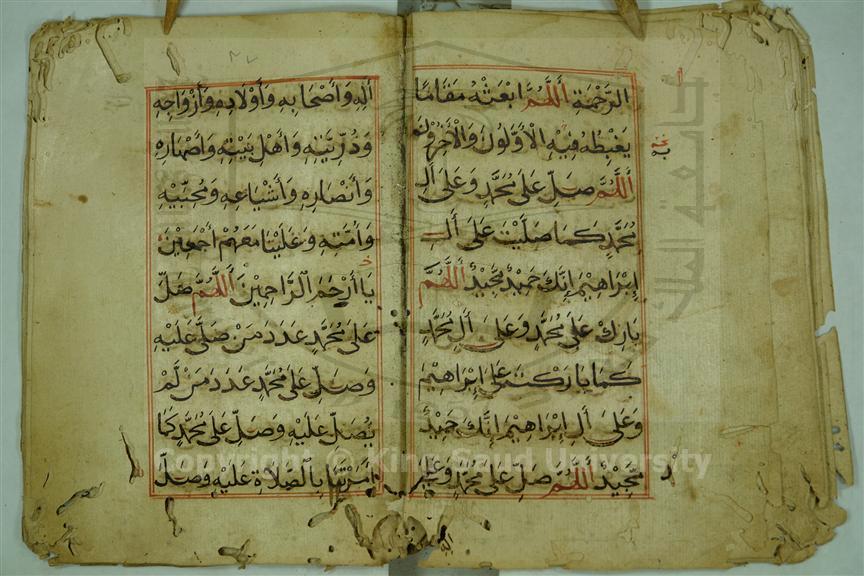 الرَّحْمَةِ اَللّٰهُمَّ ابْعَثْهُ مَقَامًا
يَغْبِطُهُ فِيْهِ الْاَوَّلُونَ وَالْاٰخِرُونَ
اَللّٰهُمَّ صَلِّ عَلَى مُحَمَّدٍ وَعَلَى اٰلِ
مُحَمَّدٍ كَمَا صَلَّيْتَ عَلَى اٰلِ
اِبْرَاهِيْمَ اِنَّكَ حَمِيْدٌ مَجِيْدٌ اَللّٰهُمَّ
بَارِكْ عَلَى مُحَمَّدٍ وَعَلَى اٰلِ مُحَمَّدٍ
كَمَا بَارَكْتَ عَلَى اِبْرَاهِيْمَ
وَعَلَى اٰلِ اِبْرَاهِيْمَ اِنَّكَ حَمِيْدٌ
مَجِيْدٌ اَللّٰهُمَّ صَلِّ عَلَى مُحَمَّدٍ وَعَلَى
اٰلِهِ وَاَصْحَابِهِ وَاَوْلَادِهِ وَاَزْوَاجِهِ
وَذُرِّيَّتِهِ وَاَهْلِ بَيْتِهِ وَاَصْهَارِهِ
وَاَنْصَارِهِ وَاَشْيَاعِهِ وَمُحِبِّيْهِ
وَاُمَّتِهِ وَعَلَيْنَا مَعَهُمْ اَجْمَعِيْنَ
يَا اَرْحَمَ الرَّاحِمِيْنَ اَللّٰهُمَّ صَلِّ
عَلَى مُحَمَّدٍ عَدَدَ مَنْ صَلَّى عَلَيْهِ
وَصَلِّ عَلَى مُحَمَّدٍ عَدَدَ مَنْ لَمْ
يُصَلِّ عَلَيْهِ وَصَلِّ عَلَى مُحَمَّدٍ كَمَا
اَمَرْتَنَا بِالصَّلَاةِ عَلَيْهِ وَصَلِّ
Copyright © King Saud University